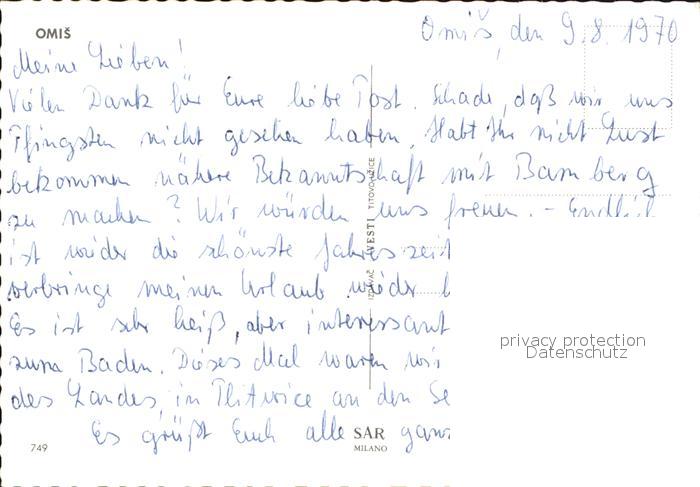 OMIŠ
Omiš, den 9.8.1970
Meine Lieben!
Vielen Dank für Eure liebe Post. Schade, daß wir uns
Pfingsten nicht gesehen haben. Habt Ihr nicht Lust
bekommen nähere Bekanntschaft mit Bamberg
zu machen? Wir würden uns freuen. - Endlich
ist wieder die schönste Jahreszeit
verbringe meinen Urlaub wieder
Es ist sehr heiß, aber interessant
zum Baden. Dieses Mal waren wir
des Landes, in Plitvice an den Se
Es grüßt Euch alle ganz
749
IZDAVAČ VESTI TITOVO UŽICE
SAR
MILANO
privacy protection
Datenschutz